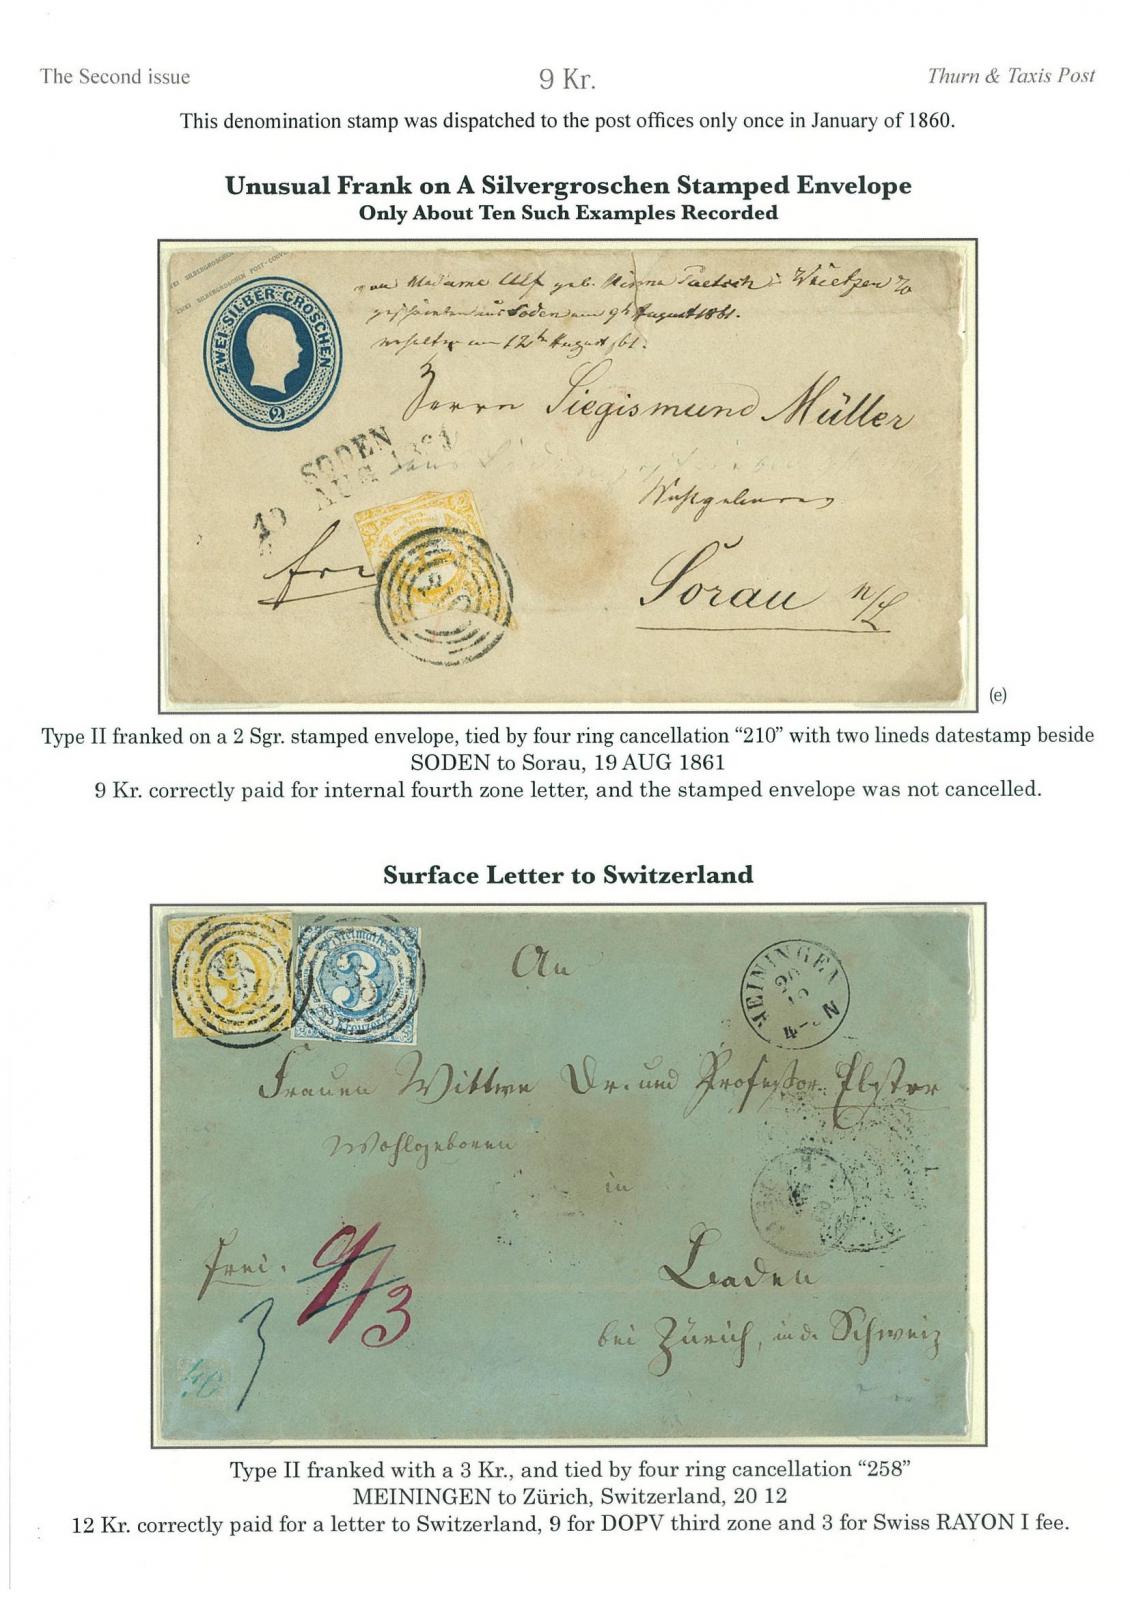 The Second issue
9 Kr.
Thurn & Taxis Post
This denomination stamp was dispatched to the post offices only once in January of 1860.
Unusual Frank on A Silvergroschen Stamped Envelope
Only About Ten Such Examples Recorded
SILBERGROSCHEN POST-COUV
ZWEI SILBERGROSCHEN POST-COUV
ZWEI SILBER GROSCHEN
2
Madame Ulf geb. Minna
aus Soden am 9th August 1861.
12th August 61.
Herrn Siegismund Müller
SODEN
19 AUG 1861
Wohlgeboren
Sorau n/L
(e)
Type II franked on a 2 Sgr. stamped envelope, tied by four ring cancellation “210” with two lineds datestamp beside
SODEN to Sorau, 19 AUG 1861
9 Kr. correctly paid for internal fourth zone letter, and the stamped envelope was not cancelled.
Surface Letter to Switzerland
9
Freimarke
3
Kreuzer
258
An
MEININGEN
20
12
4-5 N
Frauen Wittwe Dr. und Professor
Wohlgeboren
in
frei.
9/3
Baden
bei Zürich, in d. Schweiz
3
Type II franked with a 3 Kr., and tied by four ring cancellation “258”
MEININGEN to Zürich, Switzerland, 20 12
12 Kr. correctly paid for a letter to Switzerland, 9 for DOPV third zone and 3 for Swiss RAYON I fee.